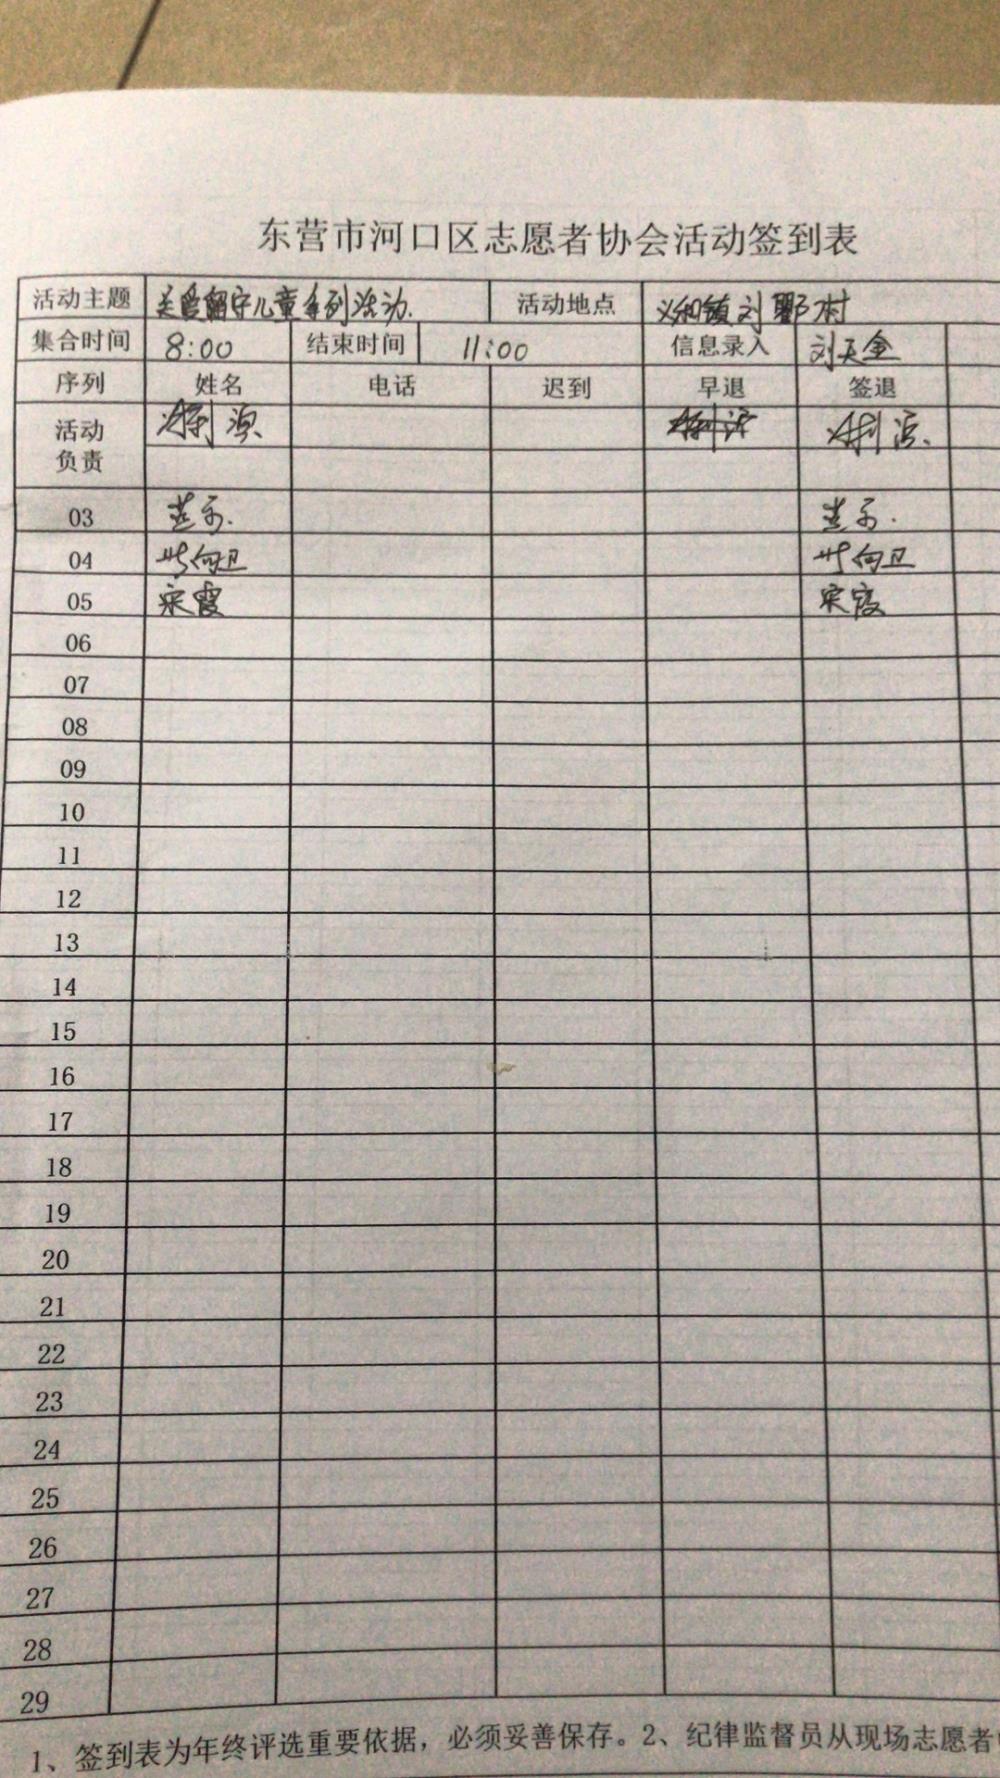 东营市河口区志愿者协会活动签到表
活动主题 关爱留守儿童系列活动. 活动地点 义和镇刘鄩村
集合时间 8:00 结束时间 11:00 信息录入 刘天金
序列 姓名 电话 迟到 早退 签退
活动
负责
03
04
05 宋霞 宋霞
06
07
08
09
10
11
12
13
14
15
16
17
18
19
20
21
22
23
24
25
26
27
28
29
1、签到表为年终评选重要依据，必须妥善保存。2、纪律监督员从现场志愿者